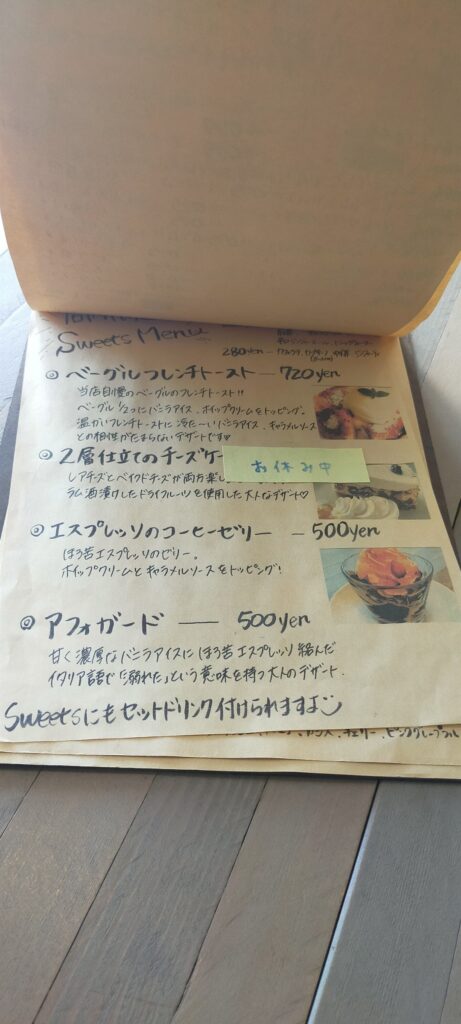 Sweets Menu
280yen
◎ ベーグルフレンチトースト ― 720yen
当店自慢のベーグルのフレンチトースト!!
ベーグル1/2つにバニラアイス、ホイップクリームをトッピング。
温かいフレンチトーストに冷たーいバニラアイス、キャラメルソース
との相性がたまらないデザートです♡
◎ 2層仕立てのチーズケー
お休み中
レアチーズとベイクドチーズが両方楽し
ラム酒漬けしたドライフルーツを使用した大人なデザート♡
◎ エスプレッソのコーヒーゼリー ― 500yen
ほろ苦エスプレッソのゼリー。
ホイップクリームとキャラメルソースをトッピング!
◎ アフォガード ― 500yen
甘く濃厚なバニラアイスにほろ苦エスプレッソ絡んだ
イタリア語で「溺れた」という意味を持つ大人のデザート.
Sweetsにもセットドリンク付けられますよ
カシス、チェリー、ピンクグレープフル